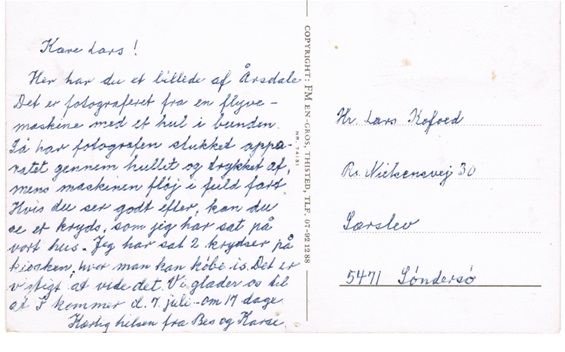 Kære Lars!
Her har du et billede af Årsdale
Det er fotograferet fra en flyve-
maskine med et hul i bunden.
Så har fotografen stukket appa-
ratet gennem hullet og trykket af,
mens maskinen fløj i fuld fart.
Hvis du ser godt efter, kan du
se et kryds, som jeg har sat på
vort hus. Jeg har sat 2 krydser på
kiosken, hvor man kan købe is. Det er
vigtigt at vide det. Vi glæder os til
at I kommer d. 7. juli - om 17 dage.
Kærlig hilsen fra Bes og
COPYRIGHT: FM EN-GROS, THISTED, TLF. 07-921288
Hr. Lars Kofoed
Rs. Nielsensvej 30
Særslev
5471 Søndersø